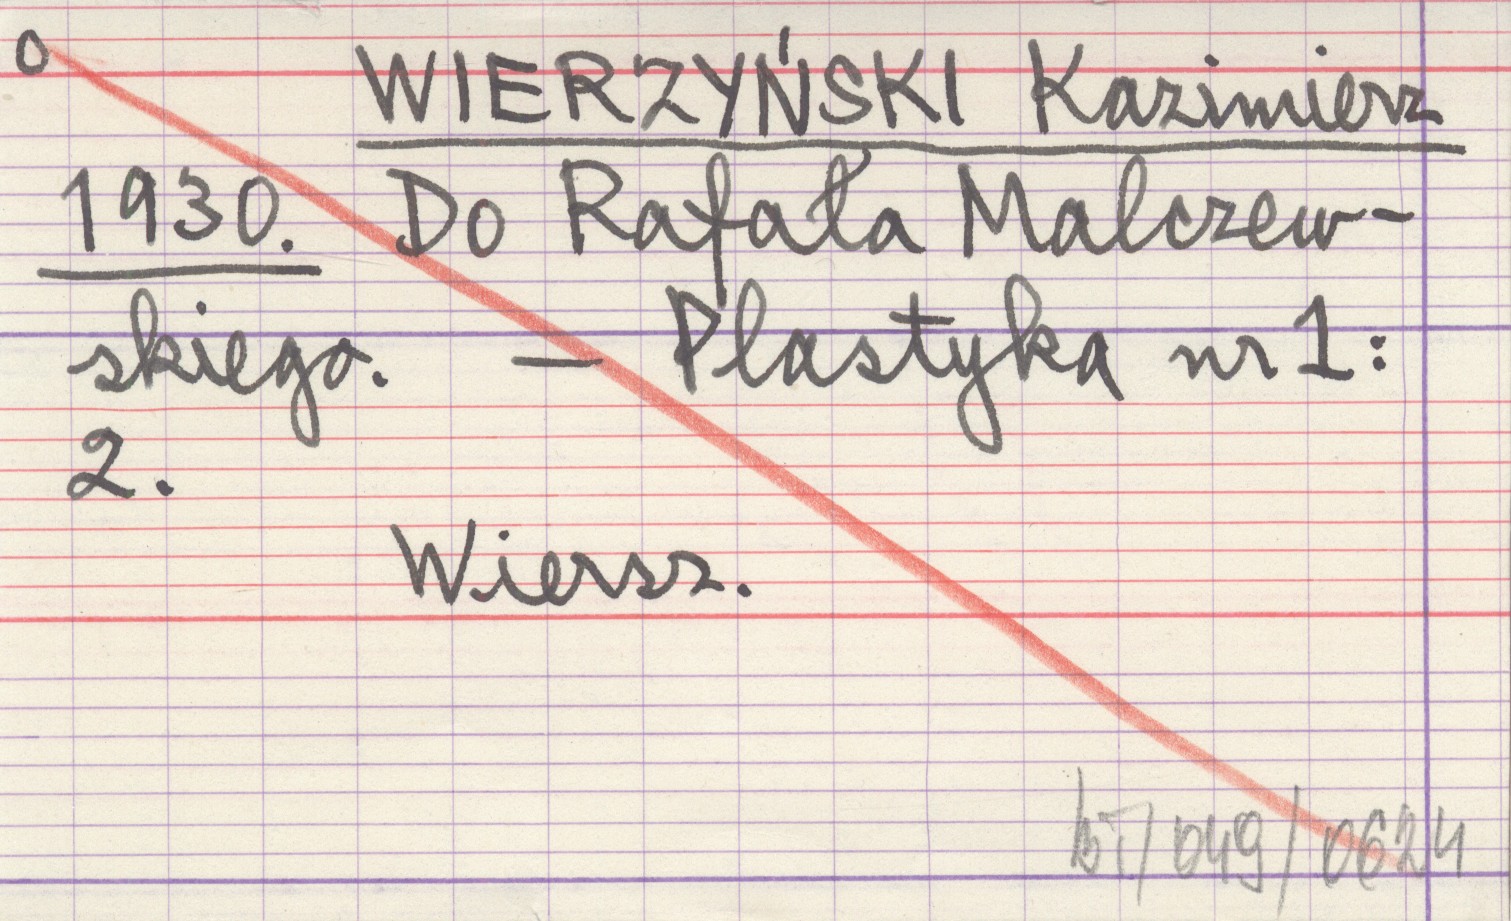 O
WIERZYŃSKI Kazimierz
1930. Do Rafała Malczew-
skiego. — Plastyka nr 1:
2.
Wiersz.
bT/049/0624